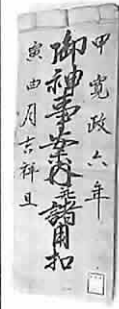 甲寛政六年
御神事諸用扣
寅四月吉祥旦